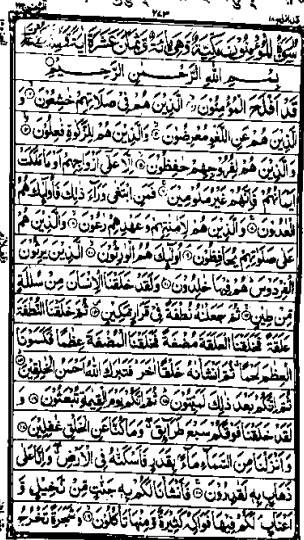 سورة المؤمنون مكية وهي مائة وثمان عشرة اية
بسم الله الرحمن الرحيم
قد افلح المؤمنون الذين هم في صلاتهم خشعون و
الذين هم عن اللغو معرضون والذين هم للزكوة فعلون و
الذين هم لفروجهم حفظون الا على ازواجهم او ما ملكت
ايمانهم فانهم غير ملومين فمن ابتغى وراء ذلك فاولئك هم
العدون والذين هم لامنتهم وعهدهم رعون والذين هم
على صلوتهم يحافظون اولئك هم الورثون الذين يرثون
الفردوس هم فيها خلدون ولقد خلقنا الانسان من سللة
من طين ثم جعلنه نطفة في قرار مكين ثم خلقنا النطفة
علقة فخلقنا العلقة مضغة فخلقنا المضغة عظما فكسونا
العظم لحما ثم انشأنه خلقا اخر فتبرك الله احسن الخلقين
ثم انكم بعد ذلك لميتون ثم انكم يوم القيمة تبعثون و
لقد خلقنا فوقكم سبع طرائق وما كنا عن الخلق غفلين
و انزلنا من السماء ماء بقدر فاسكنه في الارض و انا على
ذهاب به لقدرون فانشأنا لكم به جنت من نخيل و
اعناب لكم فيها فواكه كثيرة و منها تأكلون و شجرة تخرج